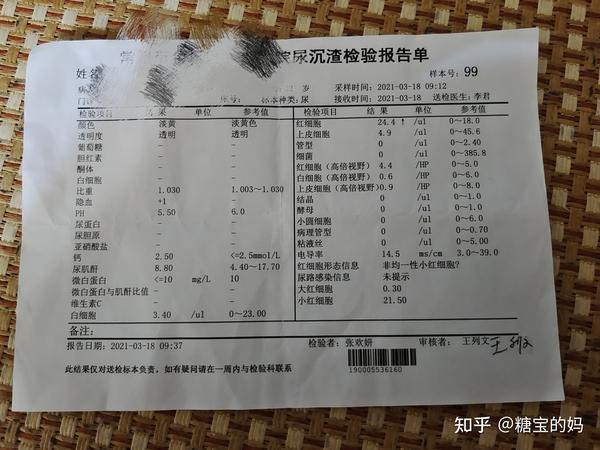 尿沉渣检验报告单
姓名
样本号: 99
岁 采样时间: 2021-03-18 09:12
标本种类: 尿 接收时间: 2021-03-18 送检医生: 李君
检验项目 结果 单位 参考值 检验项目 结果 单位 参考值
颜色 淡黄 淡黄色 红细胞 24.4 ↑ /ul 0~18.0
透明度 透明 透明 上皮细胞 4.9 /ul 0~45.6
葡萄糖 - - 管型 0 /ul 0~2.40
胆红素 - - 细菌 0 /ul 0~385.8
酮体 - - 红细胞(高倍视野) 4.4 /HP 0~5.0
白细胞 - - 白细胞(高倍视野) 0.6 /HP 0~6.0
比重 1.030 1.003~1.030 上皮细胞(高倍视野) 0.9 /HP 0~8.0
隐血 +1 - 结晶 0 /ul 0~1.0
PH 5.50 6.0 酵母 0 /ul 0~1.0
尿蛋白 - - 小圆细胞 0 /ul 0~6.0
尿胆原 - - 病理管型 0 /ul 0~0.70
亚硝酸盐 - - 粘液丝 0 /ul 0~5.00
钙 2.50 <=2.5mmol/L 电导率 14.5 ms/cm 3.0~39.0
尿肌酐 8.80 4.40~17.70 红细胞形态信息 非均一性小红细胞?
微白蛋白 <=10 mg/L 10 尿路感染信息 未提示
微白蛋白与肌酐比值 - - 大红细胞 0.30
维生素C - - 小红细胞 21.50
白细胞 3.40 /ul 0~23.00
备注:
报告日期: 2021-03-18 09:37 检验者: 张欢妍 审核者: 王列文
190005536160
此结果仅对送检标本负责, 如有疑问请在一周内与检验科联系
知乎 @糖宝的妈